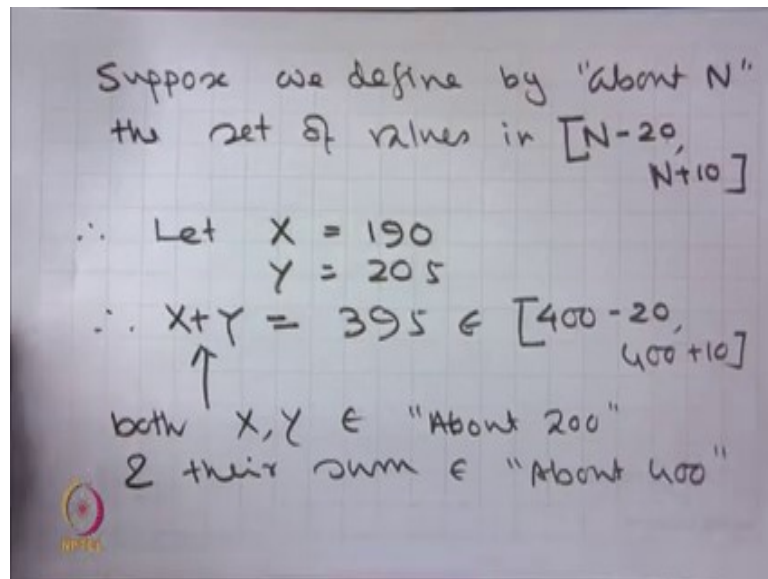 Suppose we define by "about N"
the set of values in [N-20,
N+10]
∴ Let X = 190
Y = 205
∴ X+Y = 395 ∈ [400-20,
400+10]
both X, Y ∈ "About 200"
& their sum ∈ "About 400"
NPTEL